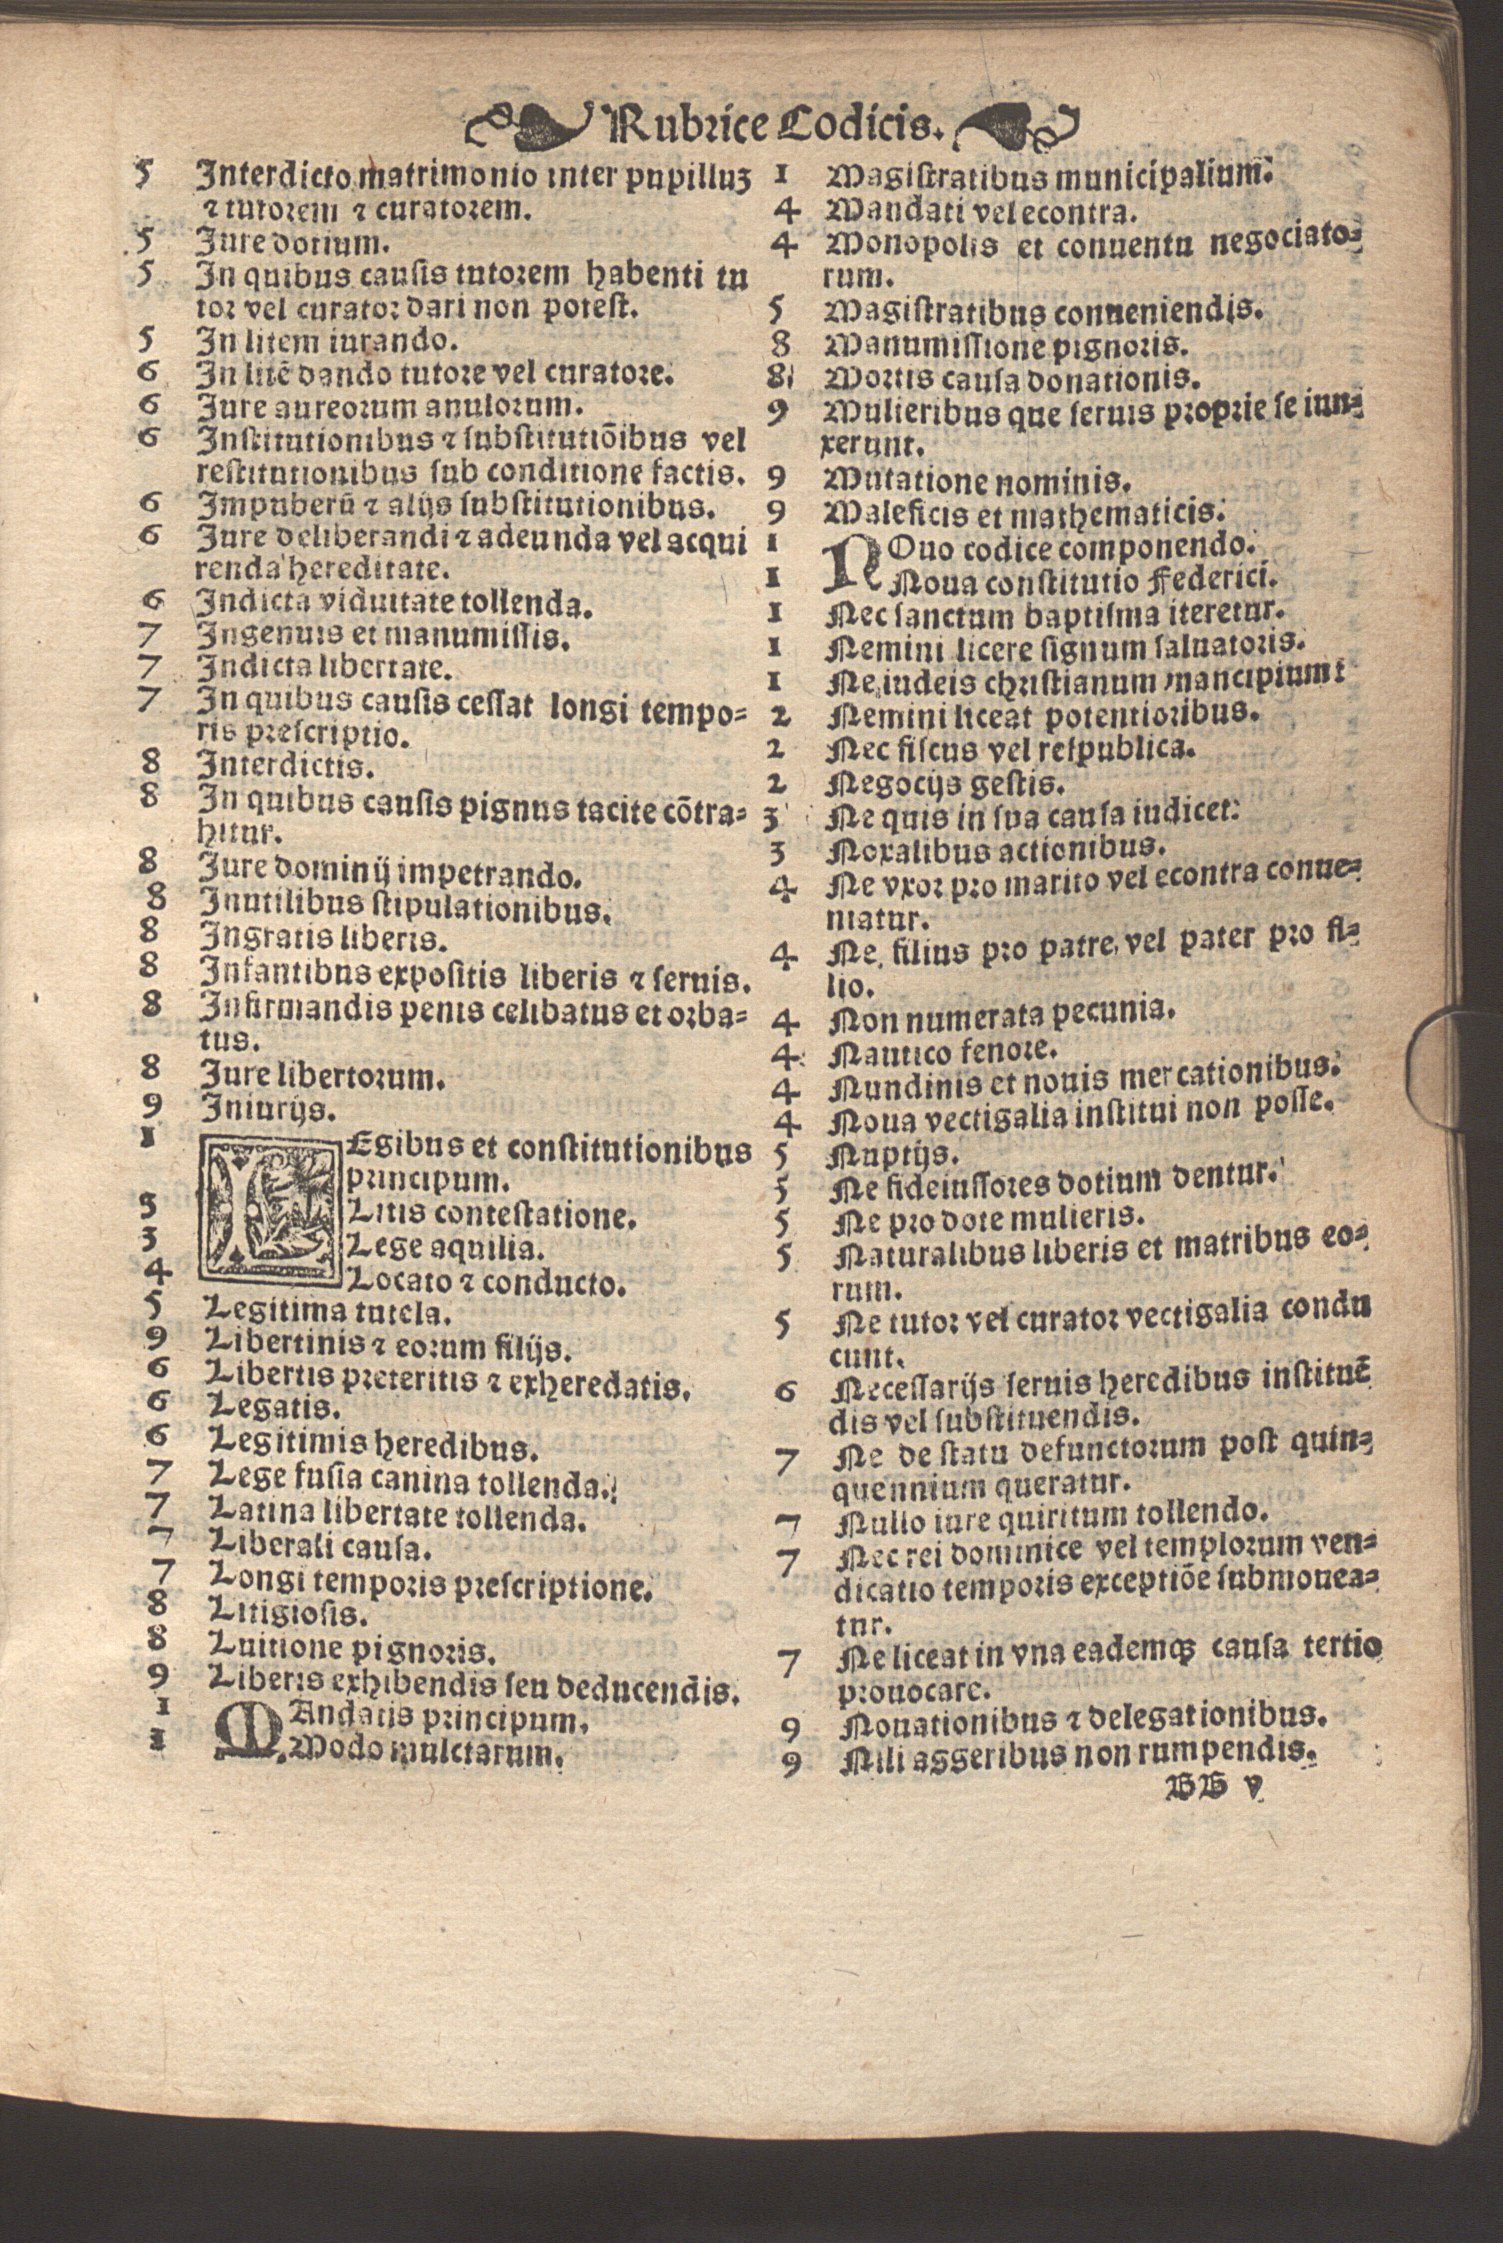 Rubrice Codicis.
5 Interdicto matrimonio inter pupilluꝫ
⁊ tutorem ⁊ curatorem.
5 Iure dotium.
5 In quibus causis tutorem habenti tu
tor vel curator dari non potest.
5 In litem iurando.
6 In litẽ dando tutore vel curatore.
6 Iure aureorum anulorum.
6 Institutionibus ⁊ substitutiõibus vel
restitutionibus sub conditione factis.
6 Impuberũ ⁊ alijs substitutionibus.
6 Iure deliberandi ⁊ adeunda vel acqui
renda hereditate.
6 Indicta viduitate tollenda.
7 Ingenuis et manumissis.
7 Indicta libertate.
7 In quibus causis cessat longi tempo⸗
ris prescriptio.
8 Interdictis.
8 In quibus causis pignus tacite cõtra⸗
hitur.
8 Iure dominij impetrando.
8 Inutilibus stipulationibus.
8 Ingratis liberis.
8 Infantibus expositis liberis ⁊ seruis.
8 Infirmandis penis celibatus et orba⸗
tus.
8 Iure libertorum.
9 Iniurijs.
1 LEgibus et constitutionibus
principum.
3 Litis contestatione.
3 Lege aquilia.
4 Locato ⁊ conducto.
5 Legitima tutela.
9 Libertinis ⁊ eorum filijs.
6 Libertis preteritis ⁊ exheredatis.
6 Legatis.
6 Legitimis heredibus.
7 Lege fusia canina tollenda.
7 Latina libertate tollenda.
7 Liberali causa.
7 Longi temporis prescriptione.
8 Litigiosis.
8 Luitione pignoris.
9 Liberis exhibendis seu deducendis.
1 MAndatis principum.
1 Modo mulctarum.
1 Magistratibus municipalium.
4 Mandati vel econtra.
4 Monopolis et conuentu negociato⸗
rum.
5 Magistratibus conueniendis.
8 Manumissione pignoris.
8 Mortis causa donationis.
9 Mulieribus que seruis proprie se iun⸗
xerunt.
9 Mutatione nominis.
9 Maleficis et mathematicis.
1 NOuo codice componendo.
1 Noua constitutio Federici.
1 Nec sanctum baptisma iteretur.
1 Nemini licere signum saluatoris.
1 Ne iudeis christianum mancipium
2 Nemini liceat potentioribus.
2 Nec fiscus vel respublica.
2 Negocijs gestis.
3 Ne quis in sua causa iudicet.
3 Noxalibus actionibus.
4 Ne vxor pro marito vel econtra conue⸗
niatur.
4 Ne filius pro patre, vel pater pro fi⸗
lio.
4 Non numerata pecunia.
4 Nautico fenore.
4 Nundinis et nouis mercationibus.
4 Noua vectigalia institui non posse.
5 Nuptijs.
5 Ne fideiussores dotium dentur.
5 Ne pro dote mulieris.
5 Naturalibus liberis et matribus eo⸗
rum.
5 Ne tutor vel curator vectigalia condu
cunt.
6 Necessarijs seruis heredibus instituẽ
dis vel substituendis.
7 Ne de statu defunctorum post quin⸗
quennium queratur.
7 Nullo iure quiritum tollendo.
7 Nec rei dominice vel templorum ven⸗
dicatio temporis exceptiõe submouea⸗
tur.
7 Ne liceat in vna eademqꝫ causa tertio
prouocare.
9 Nouationibus ⁊ delegationibus.
9 Nili aggeribus non rumpendis.
BB v